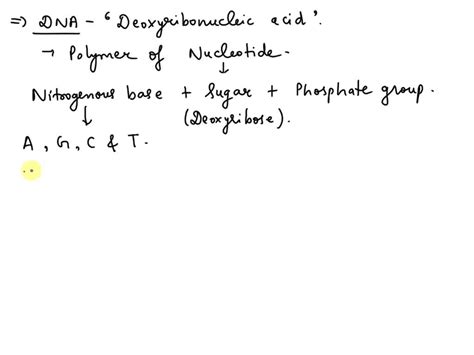 ⇒ DNA - 'Deoxyribonucleic acid'.
→ Polymer of Nucleotide.
↓
Nitrogenous base + Sugar + Phosphate group.
↓ (Deoxyribose).
A, G, C & T.